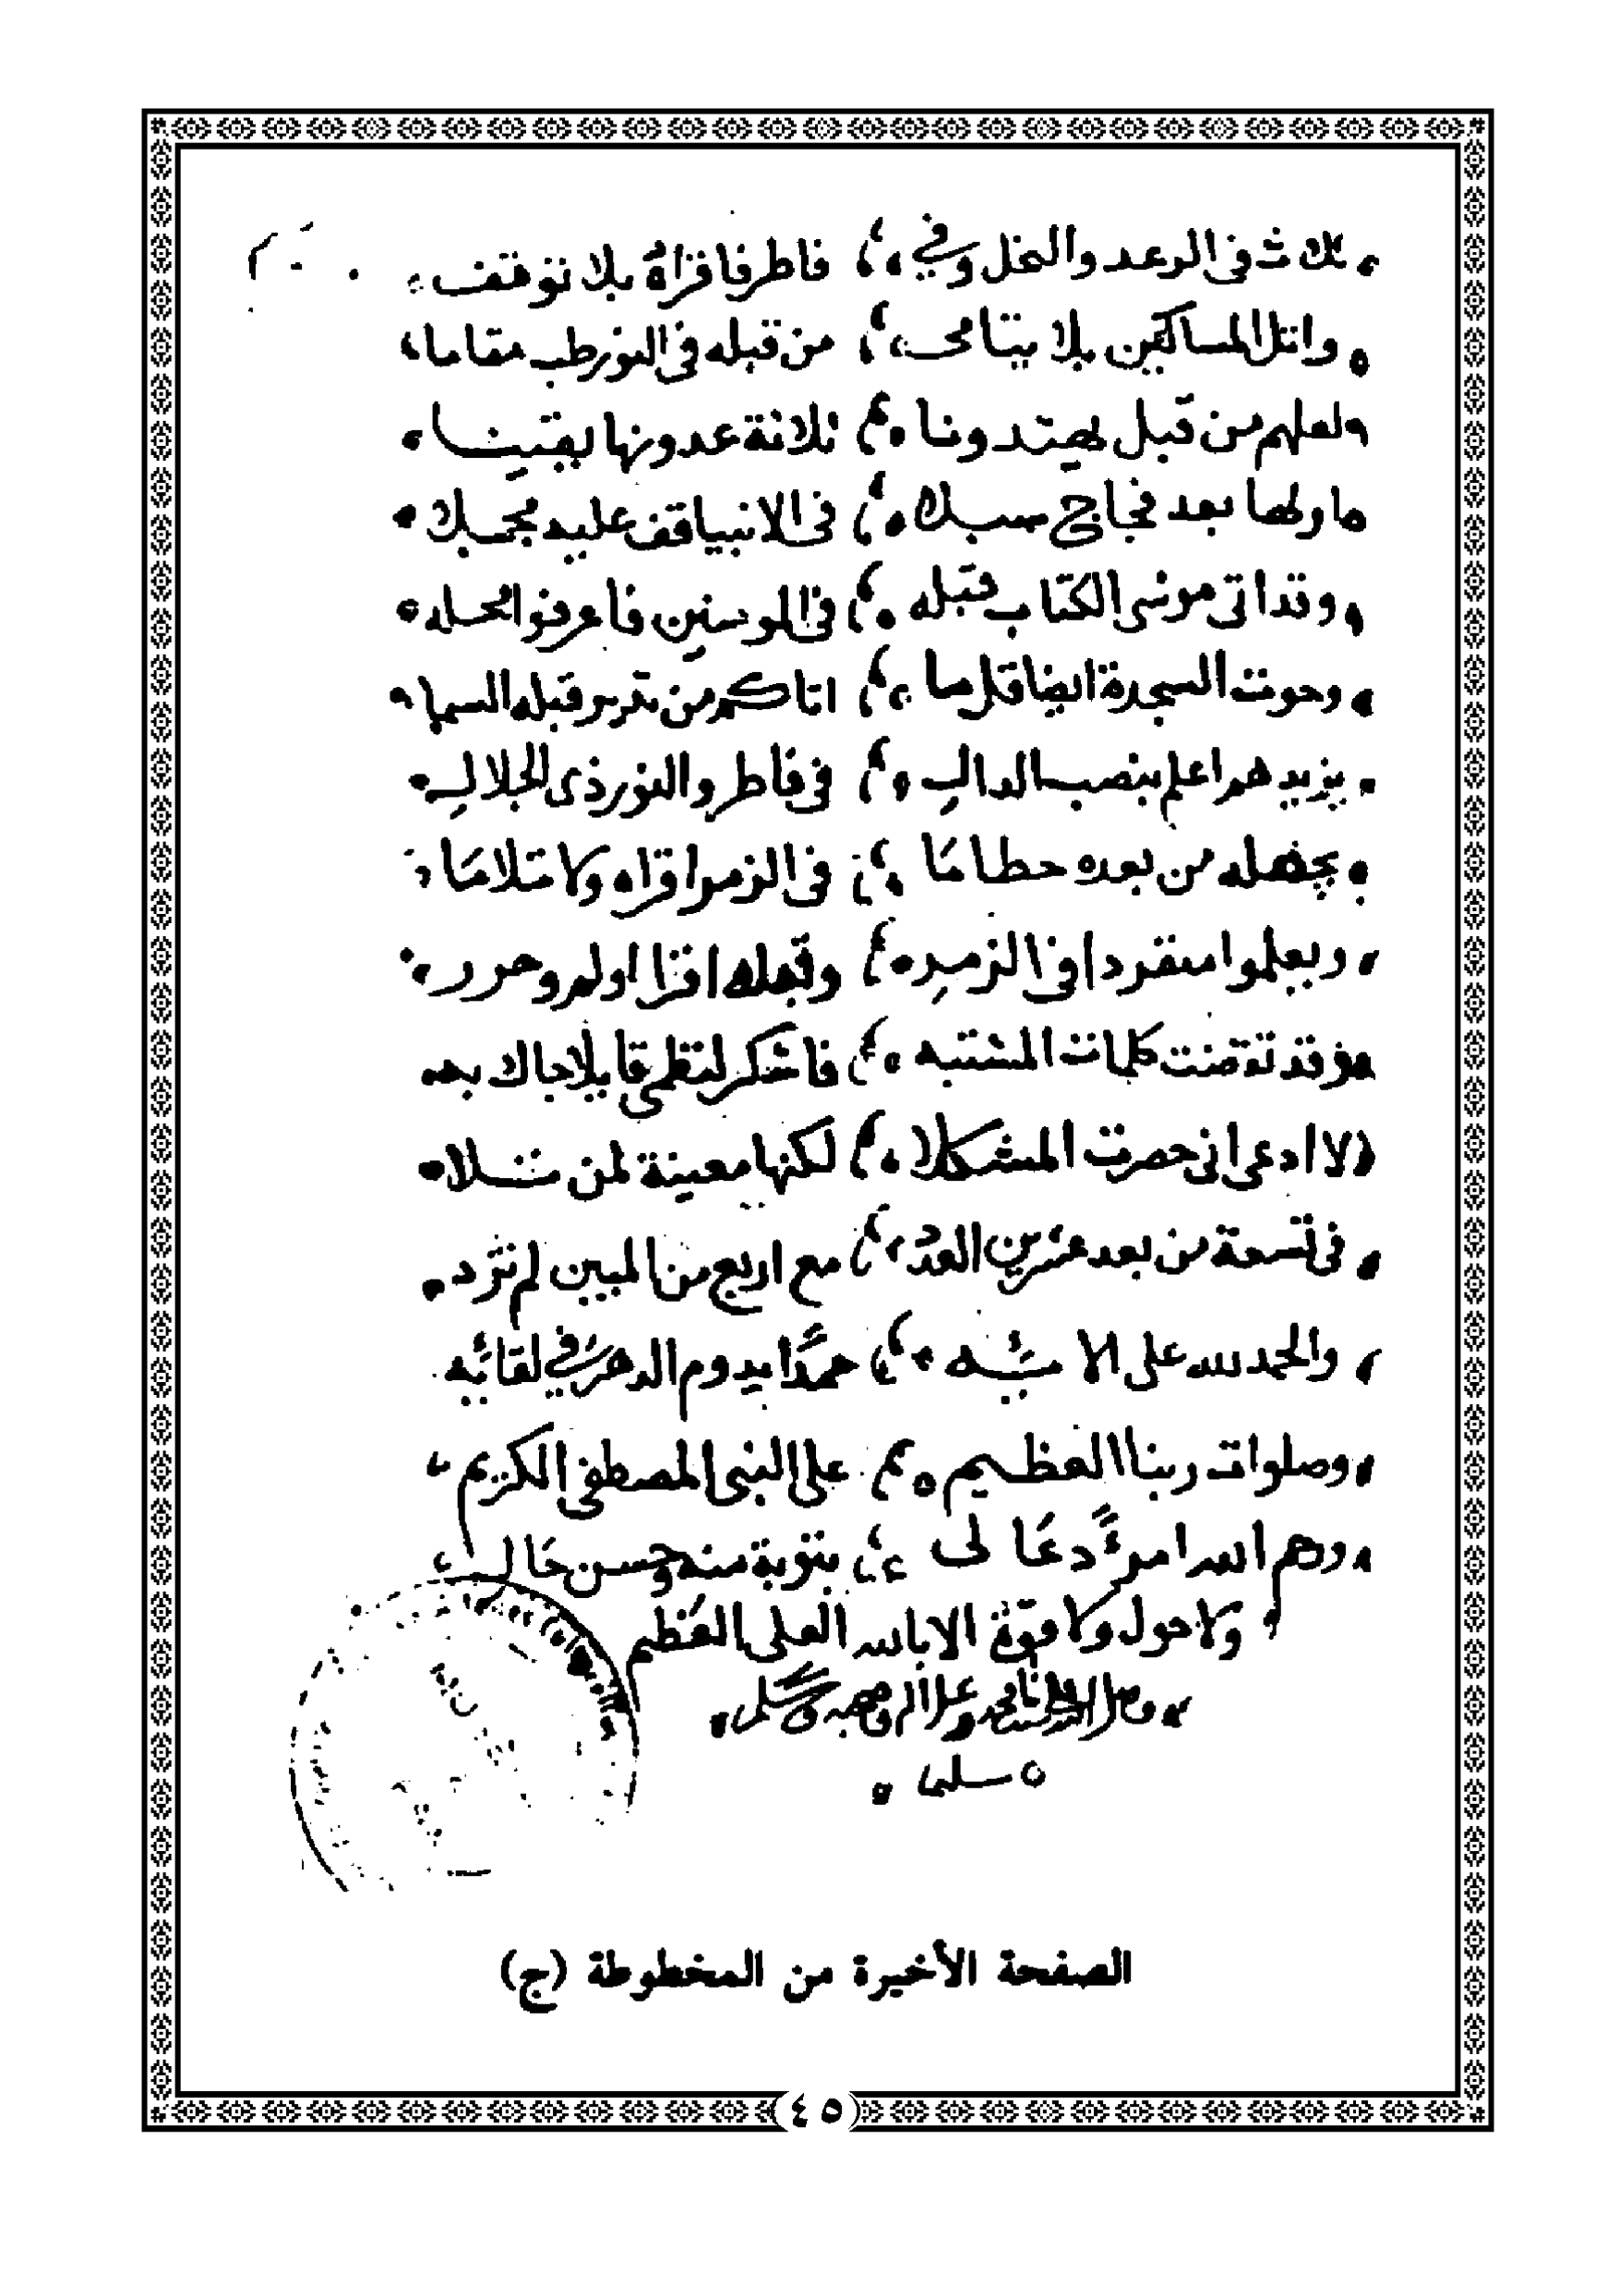 ثلاث فى الرعد والنحل وفي فاطر فاقراه بلا توقف
واتل المساكين بلا يتامى من قبله فى النور طب مقاما
ولعلهم من قبل يهتدونا ثلاثة عدونها يقينا
ما ولها بعد فجاج سبلا فى الانبيا قف عليه مجملا
وقد اتى موسى الكتاب قبله فى المومنين فاعرفوا محله
وحوت السجدة ايضا قل ما اتاكم من نذير قبله السما
يزيدهم اعلم بنصب الدال فى فاطر والنور ذى الجلال
يجعله من بعده حطاما فى الزمر اقراه ولا تلاما
ويعلموا منفردا فى الزمر وقبله اقرا اولم وحرر
وقد تقضت كلمات المشتبه فاشكر لنظمى قايلا جاك به
لا ادعى انى حصرت المشكلا لكنها معينة لمن تلا
فى تسعة من بعد عشرين العدد مع اربع من المبين لم تزد
والحمد لله على الا ئه حمدًا يدوم الدهر في لقائه
وصلوات ربنا العظيم على النبى المصطفى الكريم
ورحم الله امرءًا دعَا لى بتوبة منه وحسن حَال
ولا حول ولا قوة الا بالله العلى العَظيم
وصلى الله على سيدنا محمد وعلى اله وصحبه وسلم
سليما
الصفحة الأخيرة من المخطوطة (ج)
٤٥